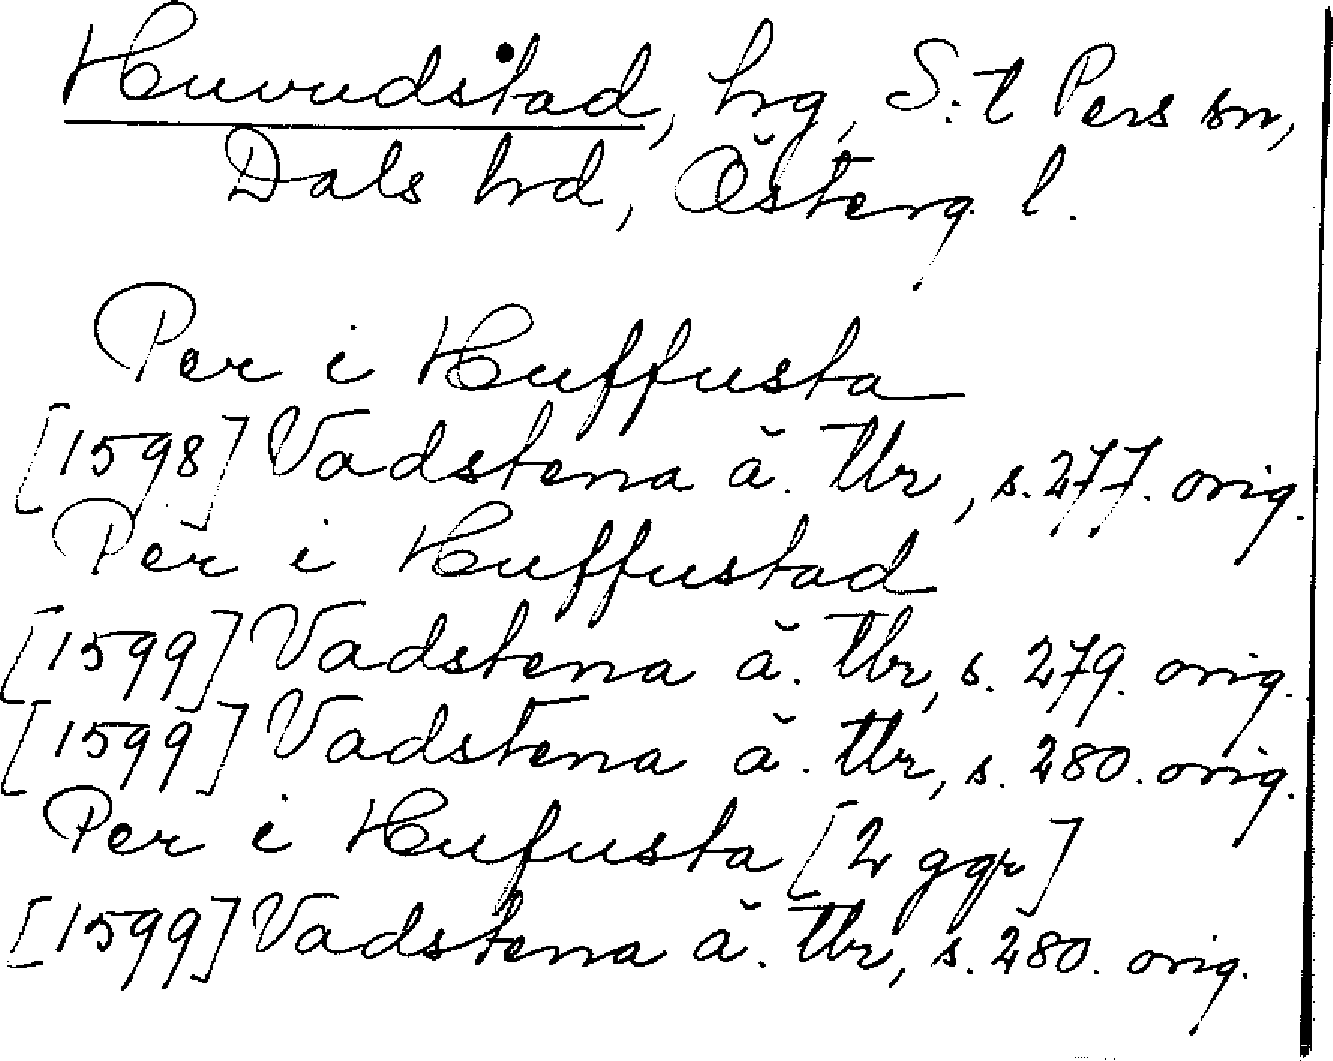 Huvudstad, hg, S:t Pers sn,
Dals hd, Österg. l.
Per i Huffusta
[1598] Vadstena ä. Tbr, s. 277. orig.
Per i Huffustad
[1599] Vadstena ä. Tbr, s. 279. orig.
[1599] Vadstena ä. Tbr, s. 280. orig.
Per i Hufusta [2 ggr]
[1599] Vadstena ä. Tbr, s. 280. orig.